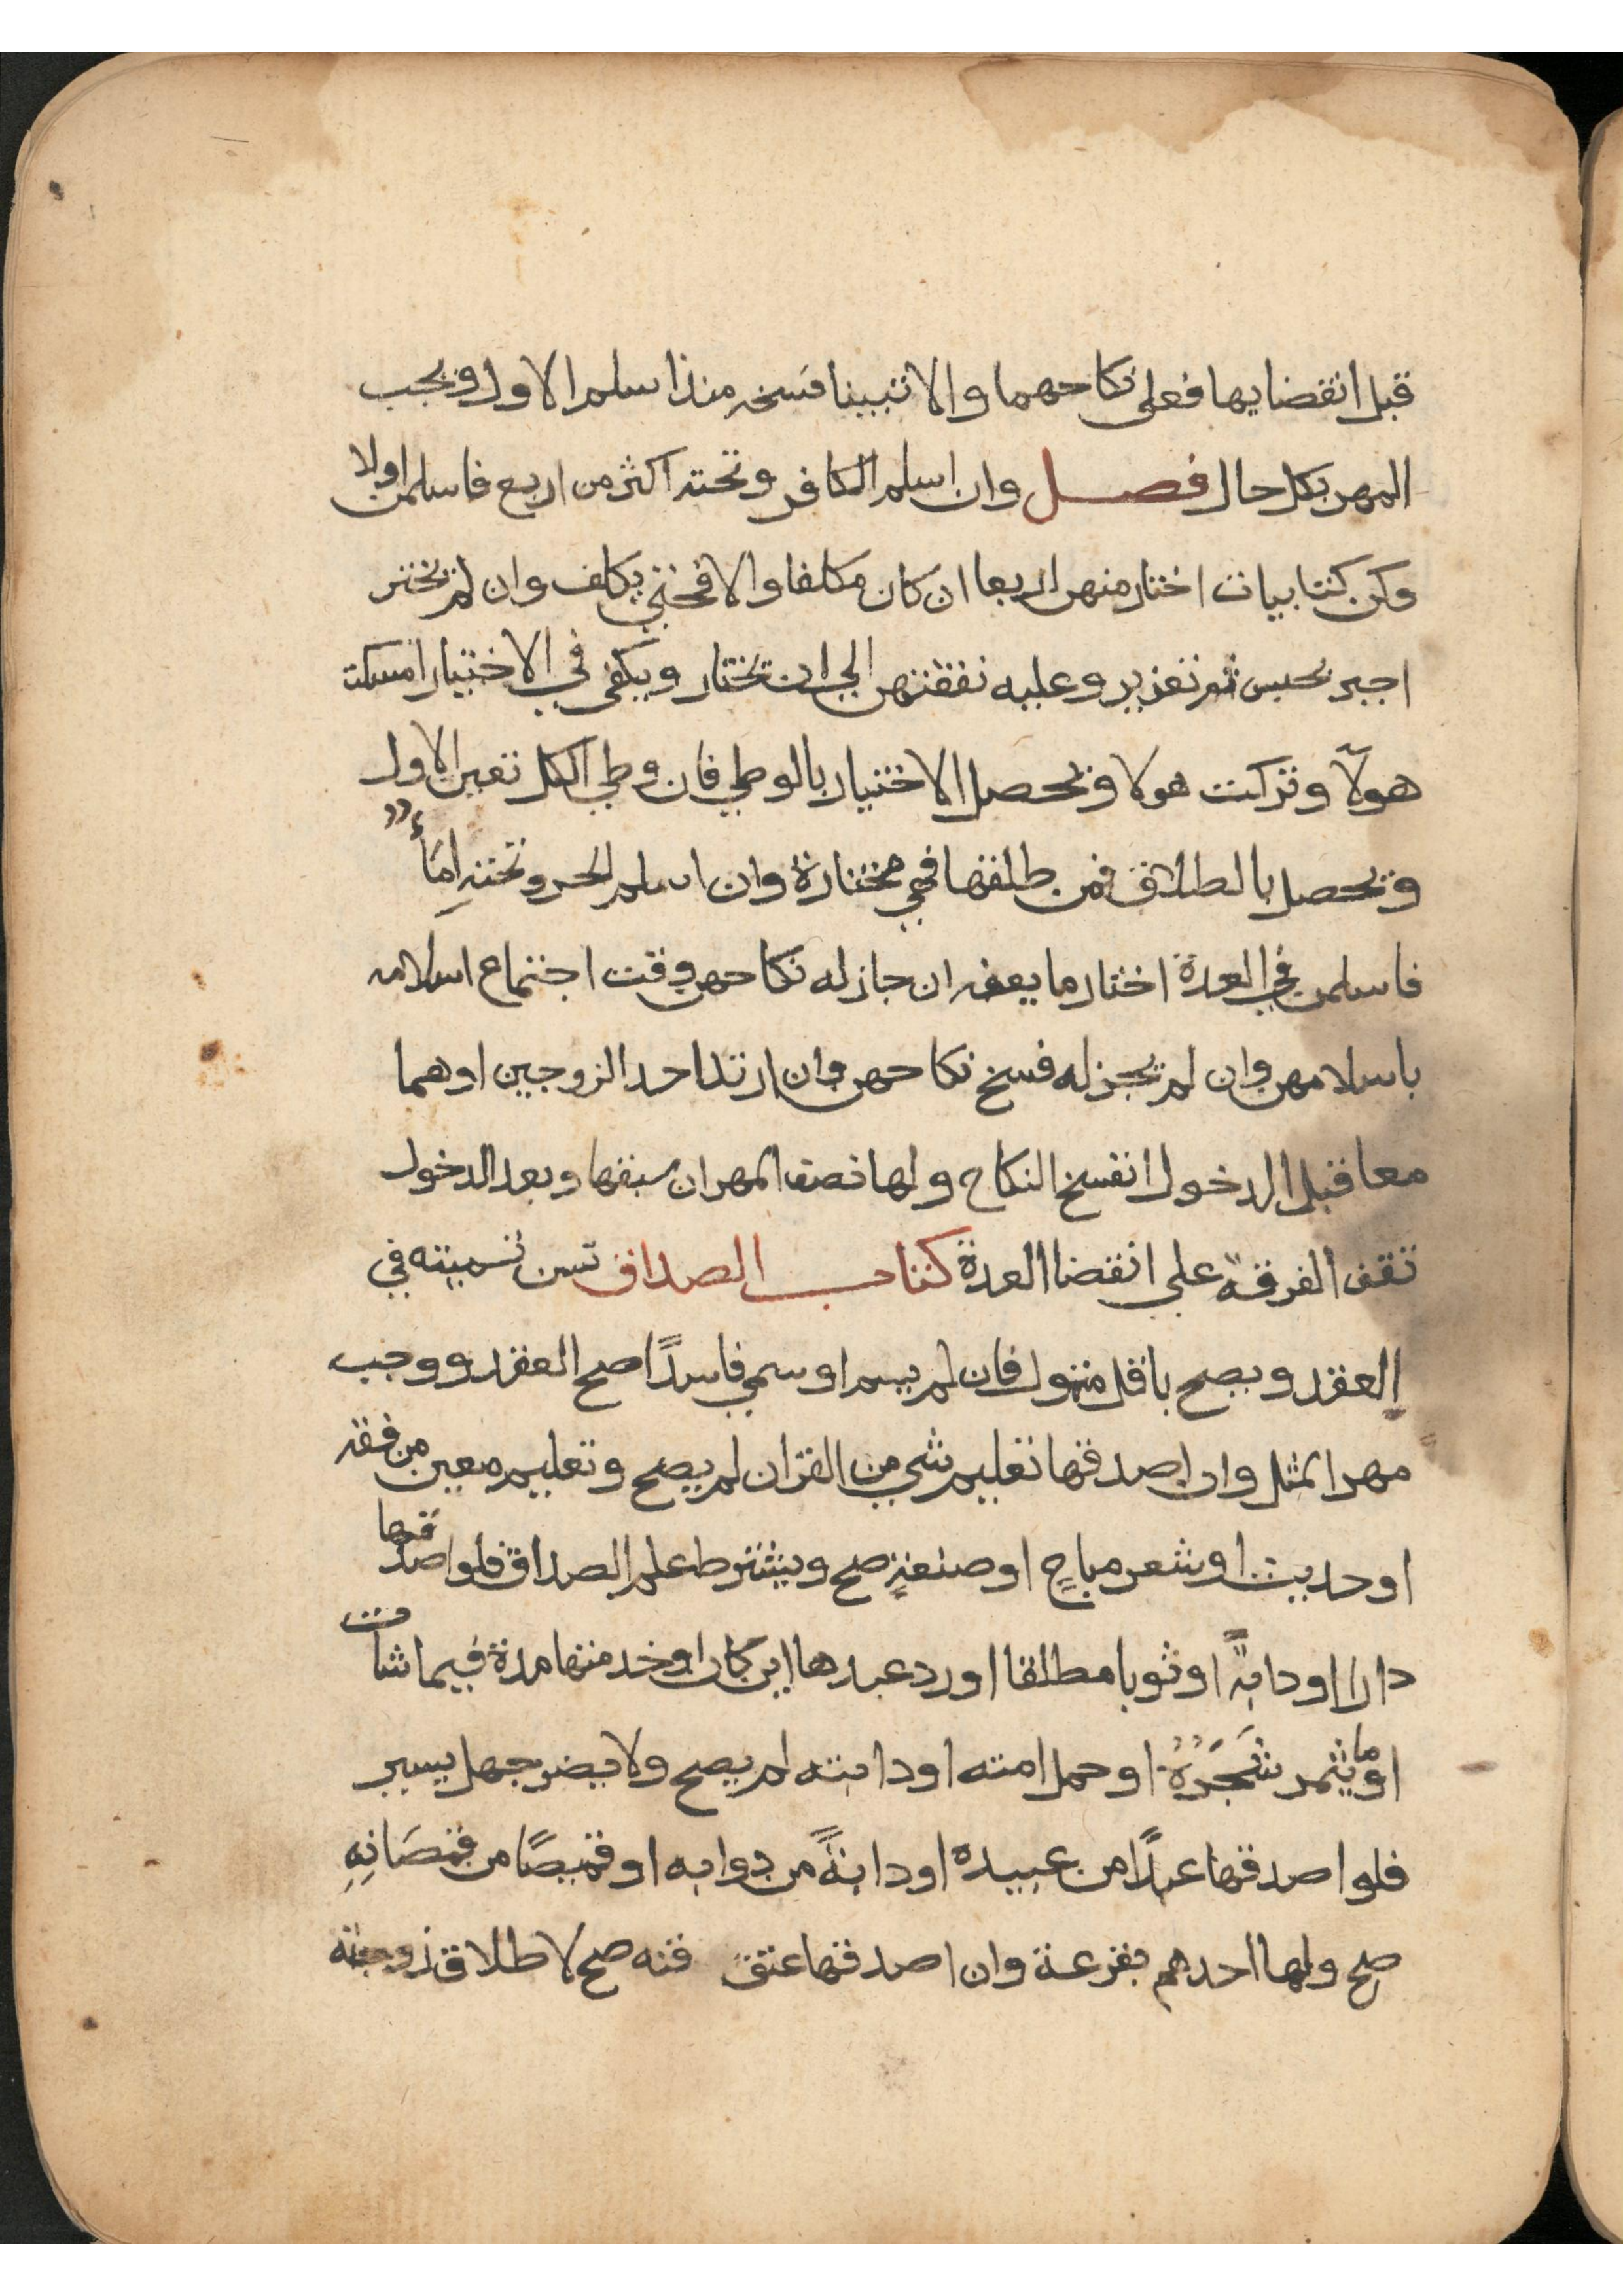 قبل انقضايها فعلى نكاحهما والا تبينا فسخه منذ اسلم الاول ويجب
المهر بكل حال فصل وان اسلم الكافر وتحته اكثر من اربع فاسلمن اولا
وكن كتابيات اختار منهن اربعا ان كان مكلفا والا فحتى يكلف وان لم يختر
اجبر بحبس ثم تعزير وعليه نفقتهن الى ان يختار ويكفي في الاختيار امسكت
هولآ وتركت هولا ويحصل الاختيار بالوطي فان وطي الكل تعين الاول
ويحصل بالطلاق فمن طلقها فهي مختارة وان اسلم الحر وتحته اِمَأٌ
فاسلمن في العدة اختار ما يعفه ان جاز له نكاحهن وقت اجتماع اسلامه
باسلامهن وان لم يجز له فسخ نكاحهن وان ارتد احد الزوجين او هما
معا قبل الدخول انفسخ النكاح ولها نصف المهر ان سبقها وبعد الدخول
تقف الفرقة على انقضا العدة كتاب الصداق تسن تسميته في
العقد ويصح باقل متمول فان لم يسم او سمي فاسداً صح العقد ووجب
مهر المثل وان اصدقها تعليم شي من القران لم يصح وتعليم معين من فقه
او حديث او شعر مباحٍ او صنعةٍ صح ويشترط علم الصداق فلو اصدقها
دارا او دابةً او ثوبا مطلقا او رد عبدها اين كان او خدمتها مدة فيما شات
او ما يثمر شَجَرُهُ او حمل امته او دابته لم يصح ولا يضر جهل يسير
فلو اصدقها عبداً من عبيده او دابةً من دوابه او قميصًا من قمصَانِهِ
صح ولها احدهم بقرعة وان اصدقها عتق قنه صح لا طلاق زوجته